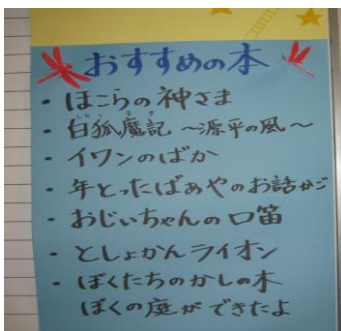 おすすめの本
・ほこらの神さま
・白狐魔記 ～源平の風～
・イワンのばか
・年とったばあやのお話かご
・おじいちゃんの口笛
・としょかんライオン
・ぼくたちのかしの木
ぼくの庭ができたよ